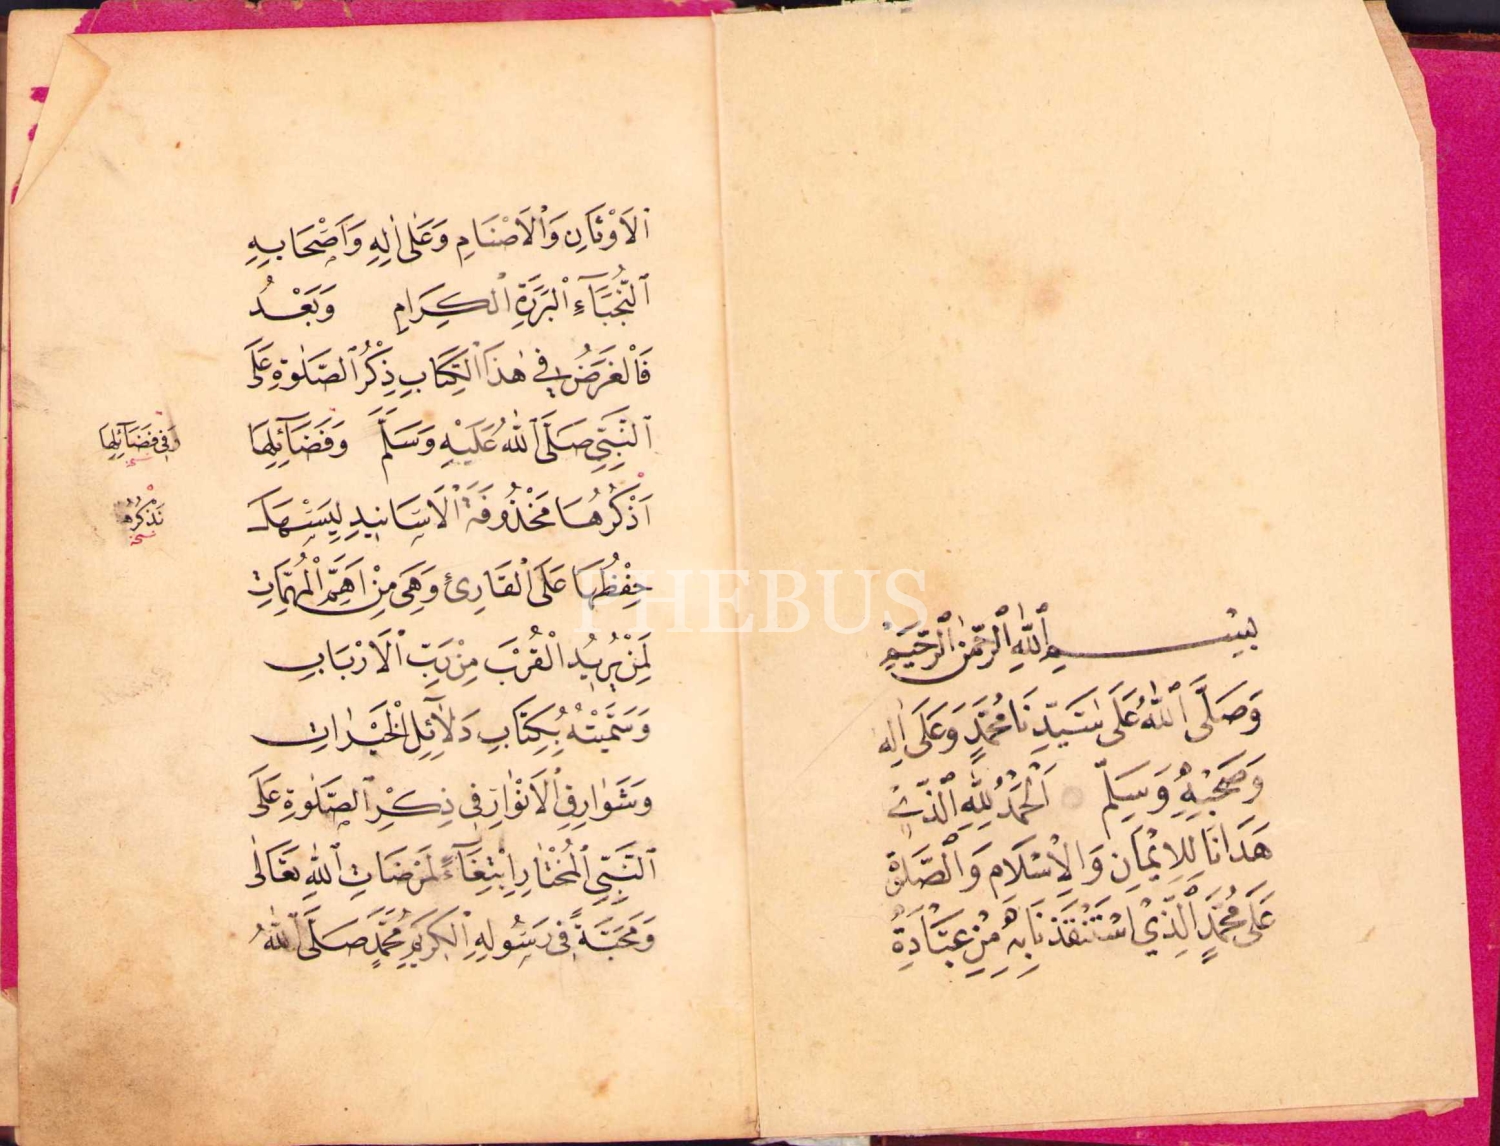 بِسْمِ ٱللّٰهِ ٱلرَّحْمٰنِ ٱلرَّحِيْمِ
وَصَلَّى ٱللّٰهُ عَلَى سَيِّدِنَا مُحَمَّدٍ وَعَلَى اٰلِهِ
وَصَحْبِهِ وَسَلِّمْ اَلْحَمْدُ لِلّٰهِ ٱلَّذِيْ
هَدَانَا لِلْاِيْمَانِ وَالْاِسْلَامِ وَالْصَّلَاةُ
عَلَى مُحَمَّدٍ ٱلَّذِيْ اسْتَنْقَذَنَا بِهِ مِنْ عِبَادَةِ
ٱلْاَوْثَانِ وَٱلْاَصْنَامِ وَعَلٰى اٰلِهِ وَاَصْحَابِهِ
ٱلنُّجَبَآءِ ٱلْبَرَرَةِ ٱلْكِرَامِ وَبَعْدُ
فَالْغَرَضُ فِي هٰذَا ٱلْكِتَابِ ذِكْرُ ٱلصَّلٰوةِ عَلَى
ٱلنَّبِيِّ صَلَّى ٱللّٰهُ عَلَيْهِ وَسَلَّمَ وَفَضَآئِلِهَا
وَفِي فَضَآئِلِهَا
نسخه
اَذْكُرُهَا مَحْذُوفَةَ ٱلْاَسَانِيدِ لِيَسْهَلَ
نَذْكُرُهَا
نسخه
حِفْظُهَا عَلَى ٱلْقَارِئِ وَهِيَ مِنْ اَهَمِّ ٱلْمُهِمَّاتِ
لِمَنْ يُرِيدُ ٱلْقُرْبَ مِنْ رَبِّ ٱلْاَرْبَابِ
وَسَمَّيْتُهُ بِكِتَابِ دَلَآئِلِ ٱلْخَيْرَاتِ
وَشَوَارِقِ ٱلْاَنْوَارِ فِي ذِكْرِ ٱلصَّلٰوةِ عَلَى
ٱلنَّبِيِّ ٱلْمُخْتَارِ اِبْتِغَآءً لِمَرْضَاتِ ٱللّٰهِ تَعَالٰى
وَمَحَبَّةً فِي رَسُولِهِ ٱلْكَرِيمِ مُحَمَّدٍ صَلَّى ٱللّٰهُ
PHEBUS